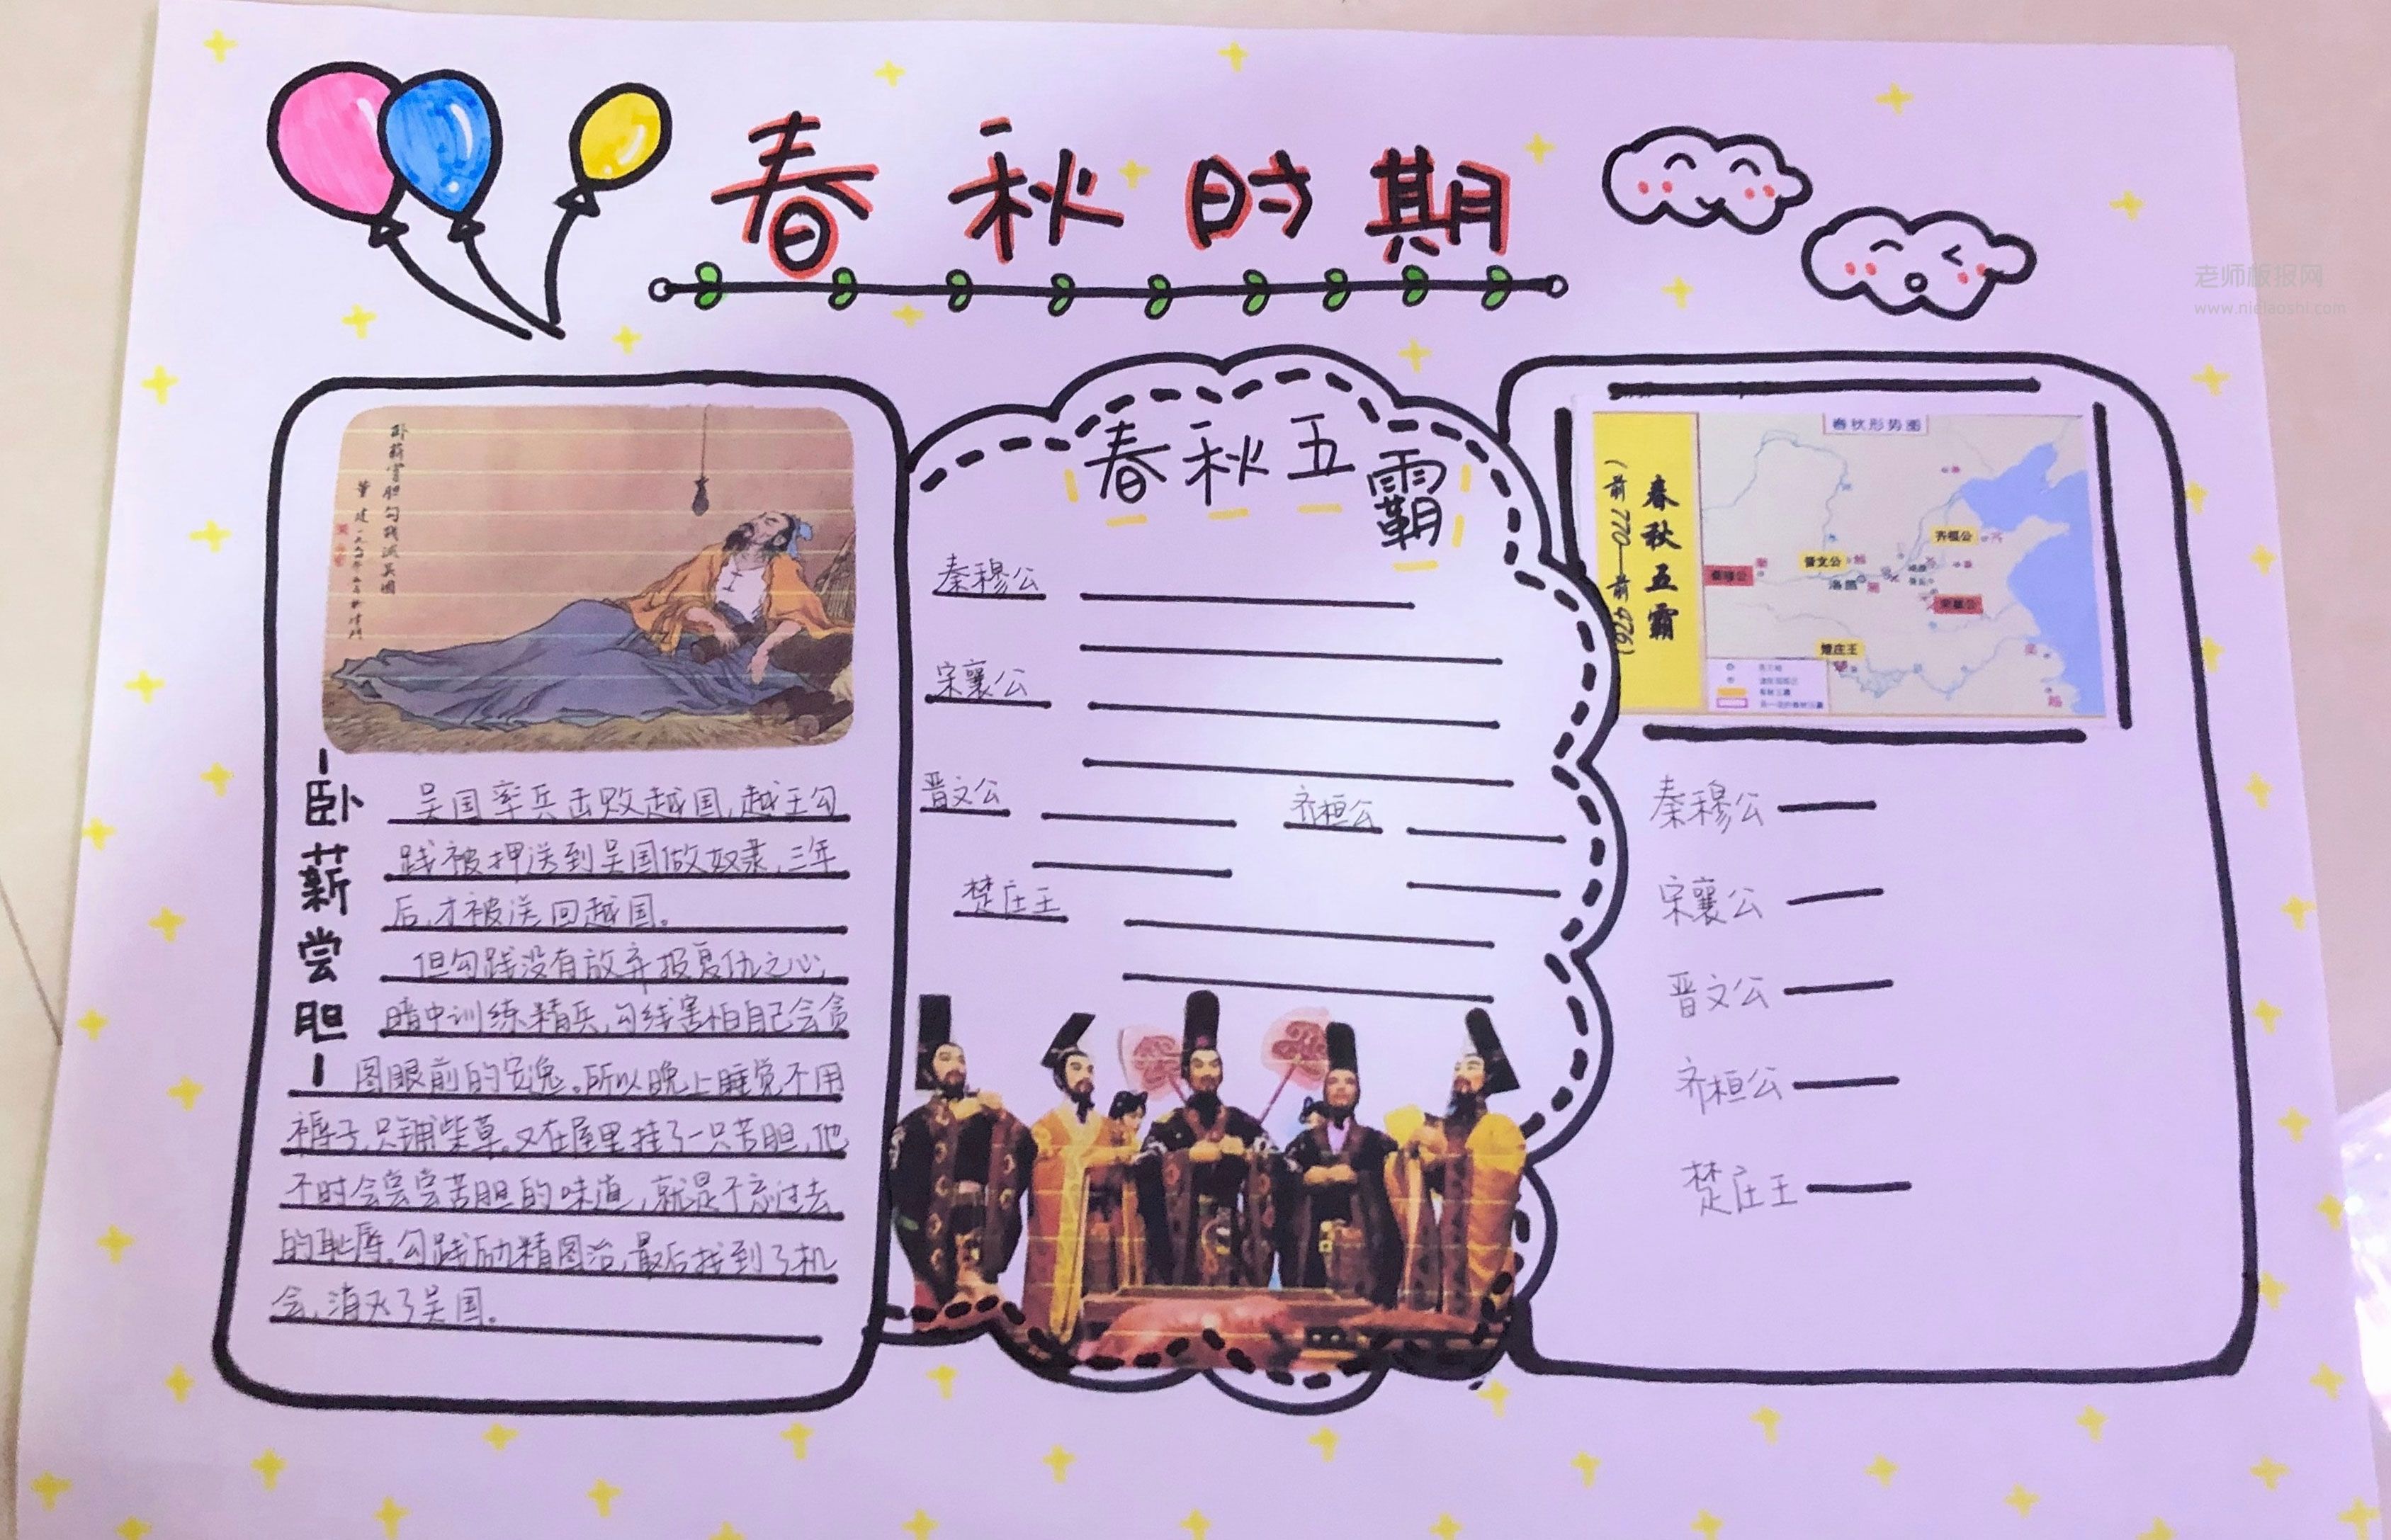 春秋时期
老师板报网
www.nielaoshi.com
卧薪尝胆勾践灭吴国
卧薪尝胆
吴国率兵击败越国,越王勾
践被押送到吴国做奴隶,三年
后,才被送回越国。
但勾践没有放弃报复仇之心,
暗中训练精兵,勾线害怕自己会贪
图眼前的安逸。所以晚上睡觉不用
褥子,只铺柴草。又在屋里挂了一只苦胆,他
不时会尝尝苦胆的味道,就是不忘过去
的耻辱。勾践励精图治,最后找到了机
会,消灭了吴国。
春秋五霸
秦穆公
宋襄公
晋文公
齐桓公
楚庄王
春秋五霸
(前770—前476)
春秋形势图
齐桓公
晋文公
秦穆公
洛邑
宋襄公
楚庄王
越
秦穆公
宋襄公
晋文公
齐桓公
楚庄王